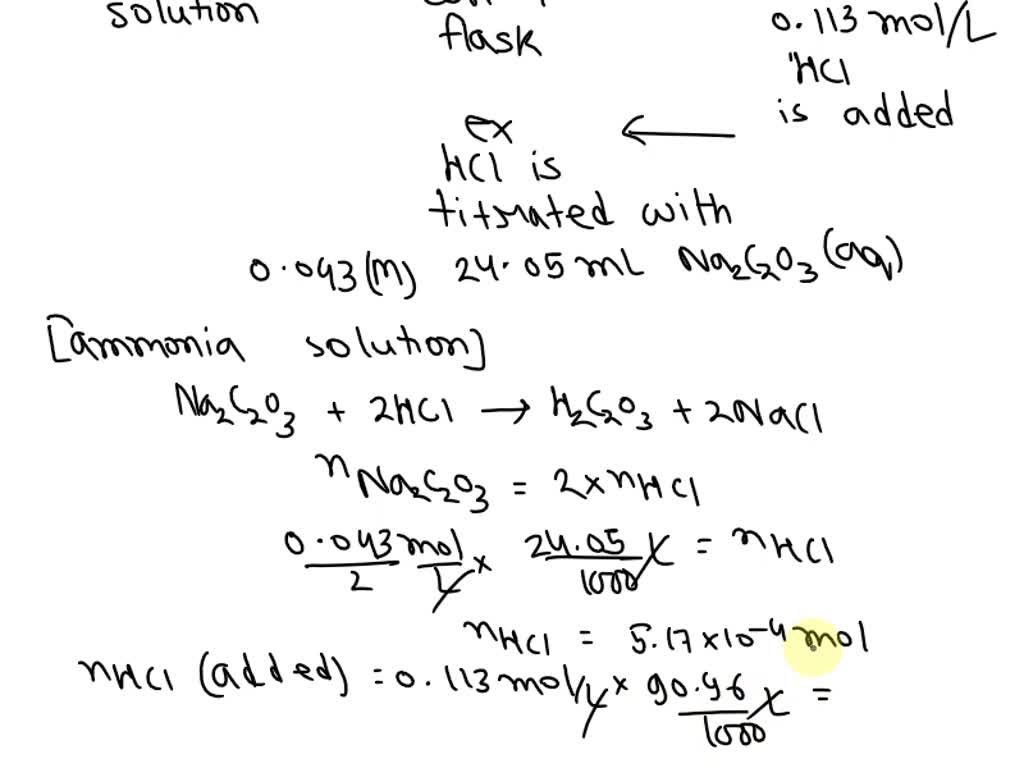 solution
flask
0.113 mol/L
HCl
is added
ex
HCl is
titrated with
0.043 (M) 24.05 mL Na₂C₂O₃ (aq)
[ammonia solution]
Na₂C₂O₃ + 2HCl → H₂C₂O₃ + 2NaCl
n Na₂C₂O₃ = 2 × n HCl
0.043/2 mol/L × 24.05/1000 L = n HCl
n HCl = 5.17 × 10⁻⁴ mol
n HCl (added) = 0.113 mol/L × 90.46/1000 L =